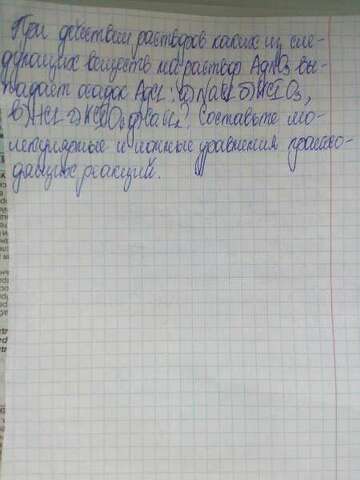 При действии растворов каких из сле-
дующих веществ на раствор AgNO3 вы-
падает осадок AgCl: а) NaCl б) KClO3,
в) HCl г) KClO4 д) CaCl2? Составьте мо-
лекулярные и ионные уравнения происхо-
дящих реакций.